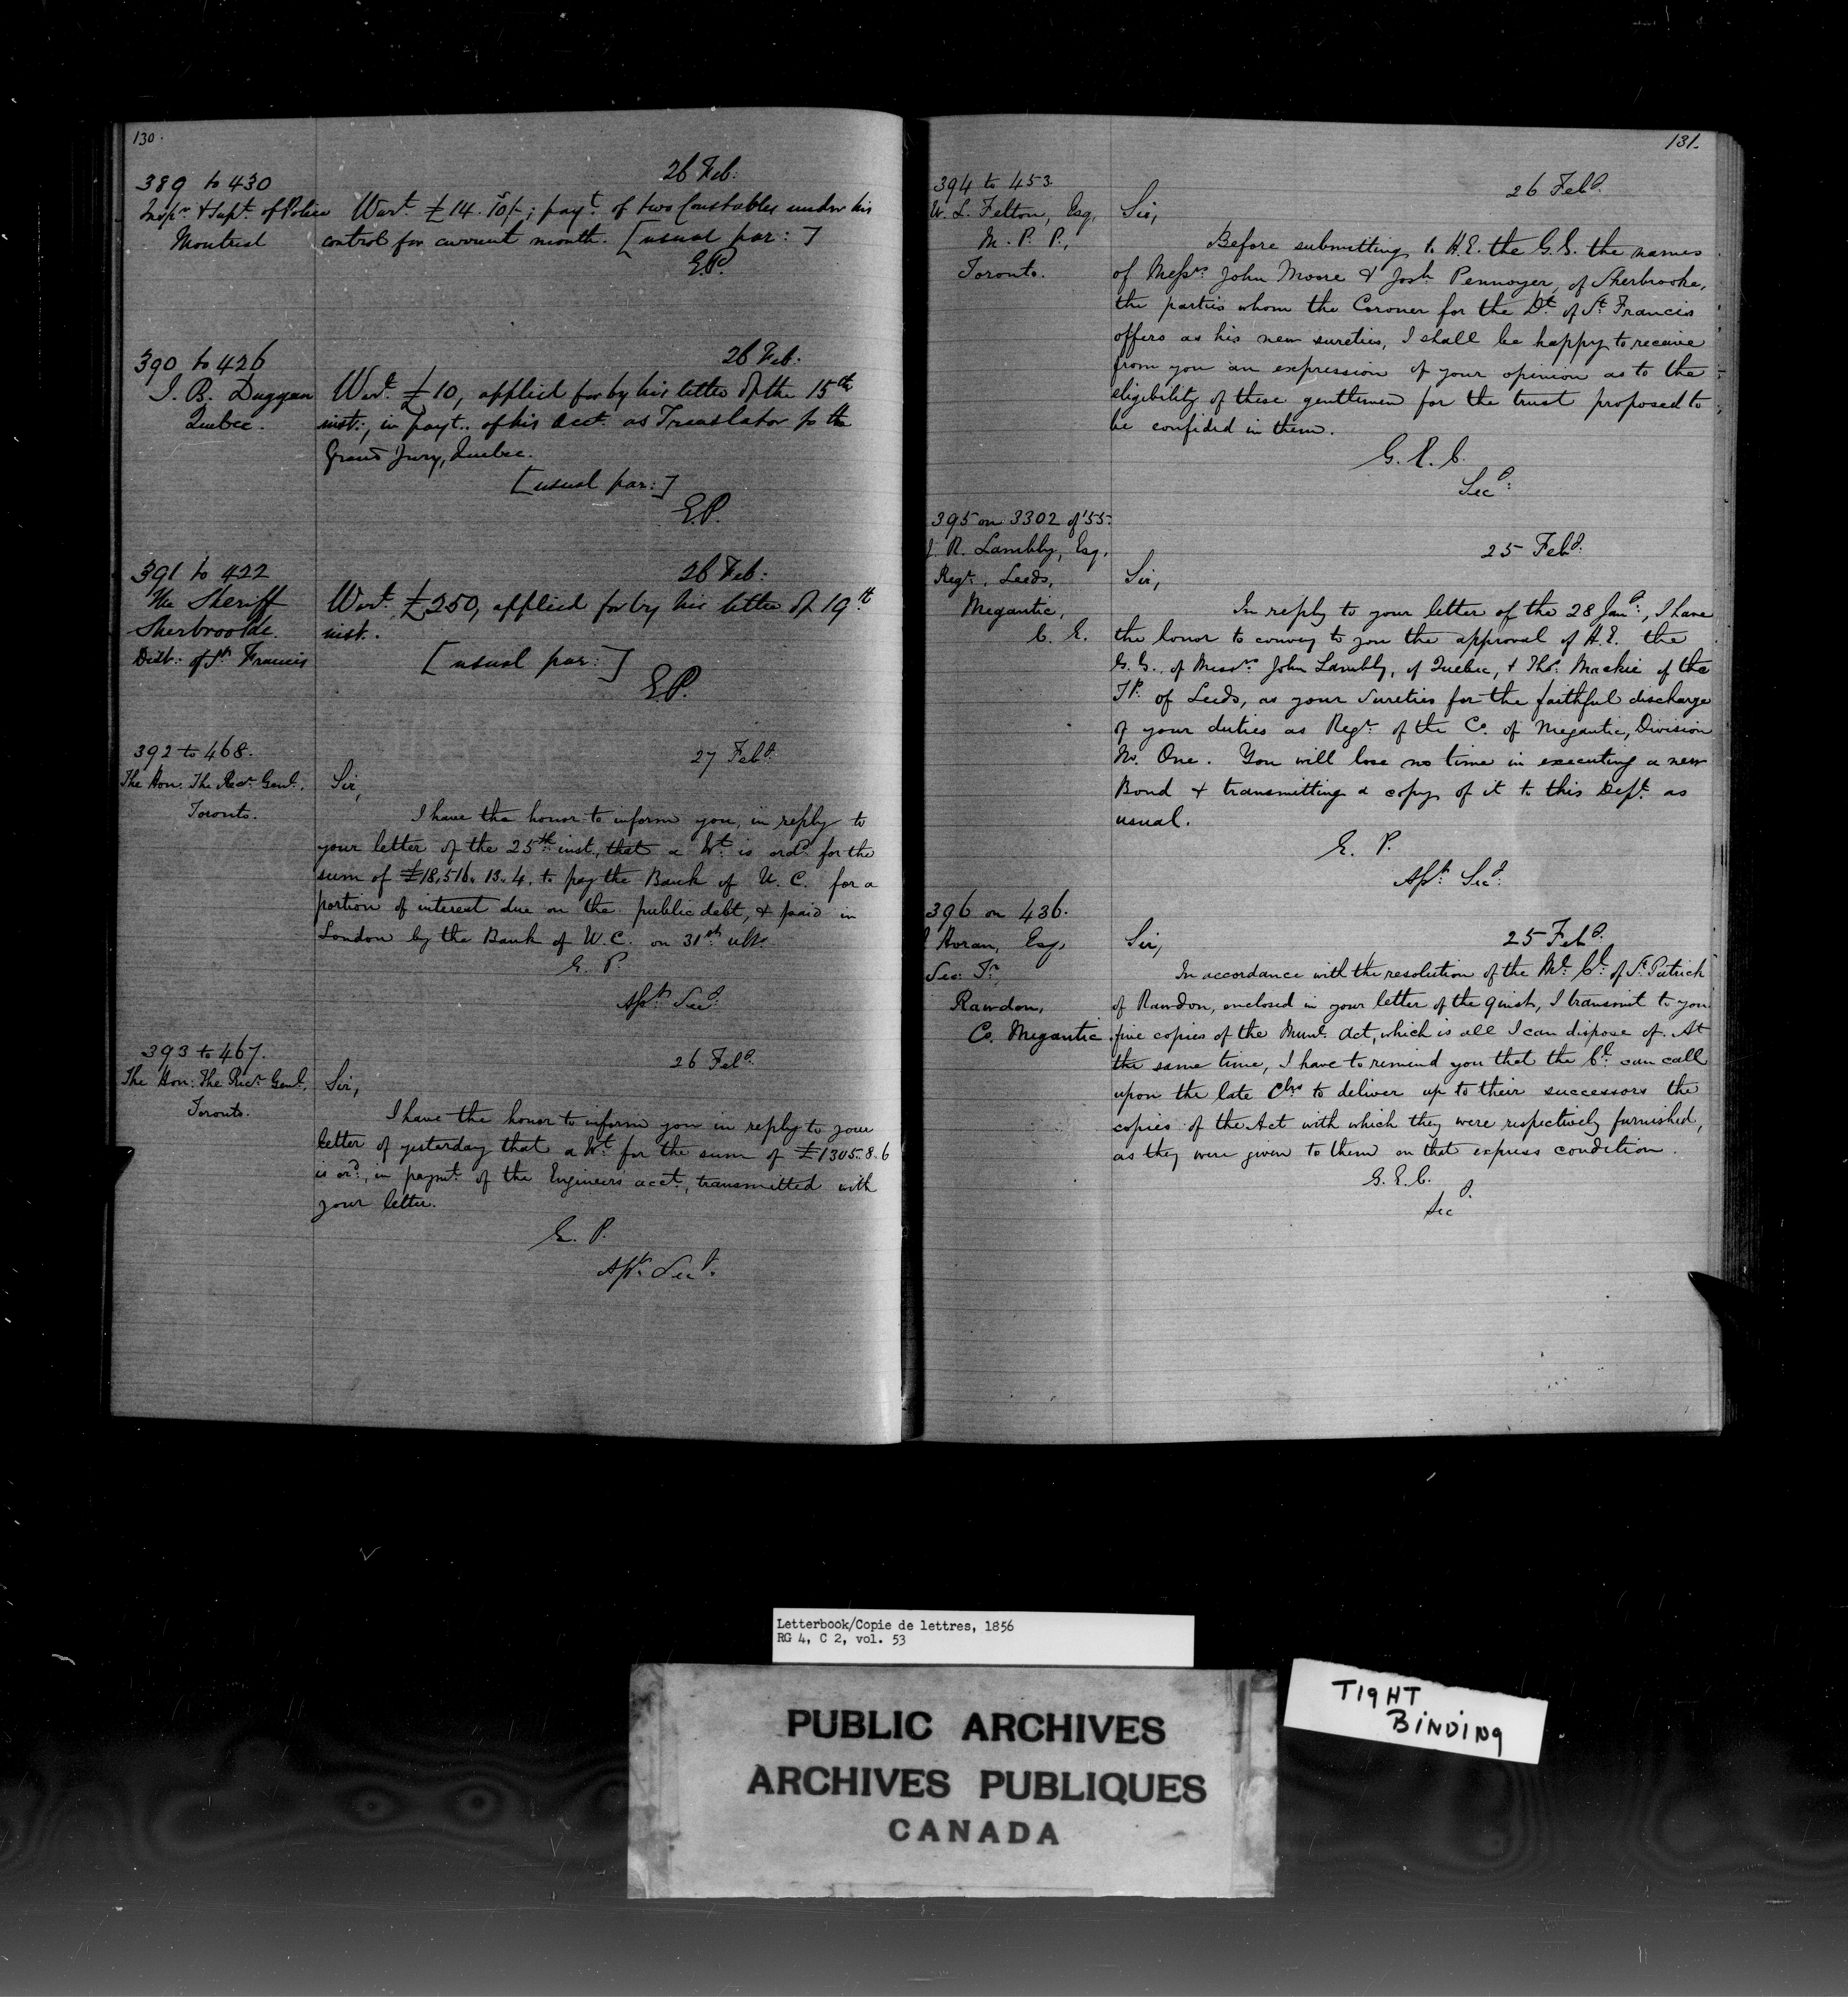 130.
389 to 430
26 Feb:
Inspr. & Supt. of Police
Montreal
Wart. £14. 10/-; payt. of two Constables under his
control for current month. [usual par:]
E.P.
390 to 426
26 Feb:
J. B. Duggan
Quebec.
Wart. £10, applied for by his letter of the 15th
inst:, in payt. of his acct. as Translator to the
Grand Jury, Quebec.
[usual par:]
E.P.
391 to 422
26 Feb:
The Sheriff
Sherbrooke.
Dist: of St Francis
Wart. £250, applied for by his letter of 19th
inst.
[usual par:]
E.P.
392 to 468.
27 Feby.
The Hon: The Recr. Genl.
Toronto.
Sir,
I have the honor to inform you, in reply to
your letter of the 25th inst., that a Wt. is ordd. for the
sum of £18,516. 13. 4. to pay the Bank of U. C. for a
portion of interest due on the public debt, & paid in
London by the Bank of U. C. on 31st ulto.
E. P.
Asst. Secy.
393 to 467.
26 Feby.
The Hon: The Recr. Genl.
Toronto.
Sir,
I have the honor to inform you in reply to your
letter of yesterday that a Wt. for the sum of £1305. 8. 6
is ord., in paymt. of the Engineers acct., transmitted with
your letter.
E. P.
Asst. Secy.
131.
394 to 453.
26 Feby.
W. L. Felton, Esq,
M. P. P.,
Toronto.
Sir,
Before submitting to H.E. the G.G. the names
of Messrs. John Moore & Josh. Pennoyer, of Sherbrooke,
the parties whom the Coroner for the Dt. of St. Francis
offers as his new sureties, I shall be happy to receive
from you an expression of your opinion as to the
eligibility of these gentlemen for the trust proposed to
be confided in them.
G. E. C.
Secy.
395 on 3302 of '55.
25 Feby.
J. R. Lambly, Esq,
Regr., Leeds,
Megantic,
C. E.
Sir,
In reply to your letter of the 28 Jany., I have
the honor to convey to you the approval of H.E. the
G.G. of Messrs. John Lambly, of Quebec, & Thos. Mackie of the
TP. of Leeds, as your Sureties for the faithful discharge
of your duties as Regr. of the Co. of Megantic, Division
No. One. You will lose no time in executing a new
Bond & transmitting a copy of it to this Dept. as
usual.
E. P.
Asst. Secy.
396 on 436.
25 Feby.
Horan, Esq,
Sec: Tr.
Rawdon,
Co. Megantic.
Sir,
In accordance with the resolution of the Ml. Cl. of St. Patrick
of Rawdon, enclosed in your letter of the 9 inst, I transmit to you
five copies of the Munl. Act, which is all I can dispose of. At
the same time, I have to remind you that the Cl. can call
upon the late Clrs to deliver up to their successors the
copies of the Act with which they were respectively furnished,
as they were given to them on that express condition.
G. E. C.
Secy.
Letterbook/Copie de lettres, 1856
RG 4, C 2, vol. 53
PUBLIC ARCHIVES
ARCHIVES PUBLIQUES
CANADA
TIGHT
BINDING